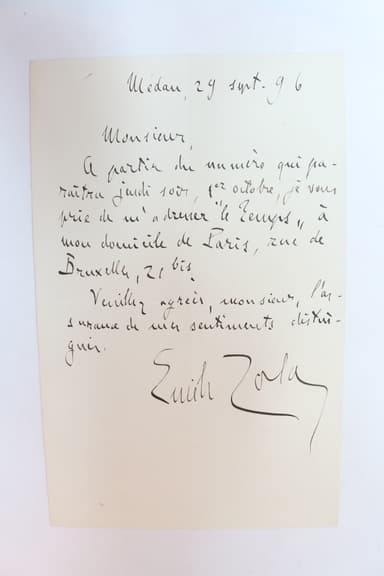 Médan, 29 sept. 96
Monsieur,
A partir du numéro qui pa-
raîtra jeudi soir, 1er octobre, je vous
prie de m'adresser "le Temps" à
mon domicile de Paris, rue de
Bruxelles, 21 bis.
Veuillez agréer, monsieur, l'as-
surance de mes sentiments distin-
gués.
Emile Zola